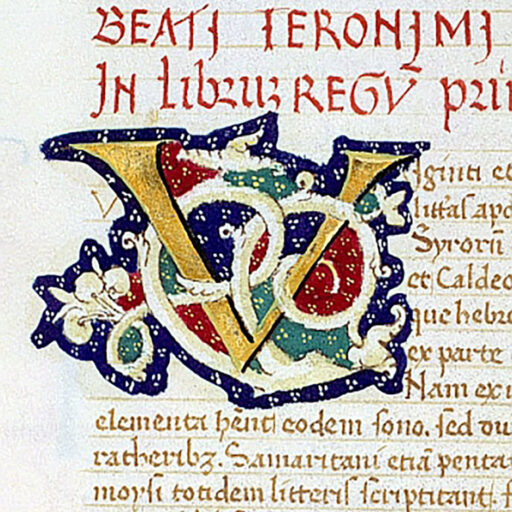 BEATI IERONIMI
IN librum REGŪ pri
V
Iginti et
litt̃as apd
Syrorū
et Caldeo
que hebre
ex parte
Nam ex
elementa hēnt eodem sono. sed
ratheribꝫ. Samaritani etiā penta
moysi totidem litteris scriptitant